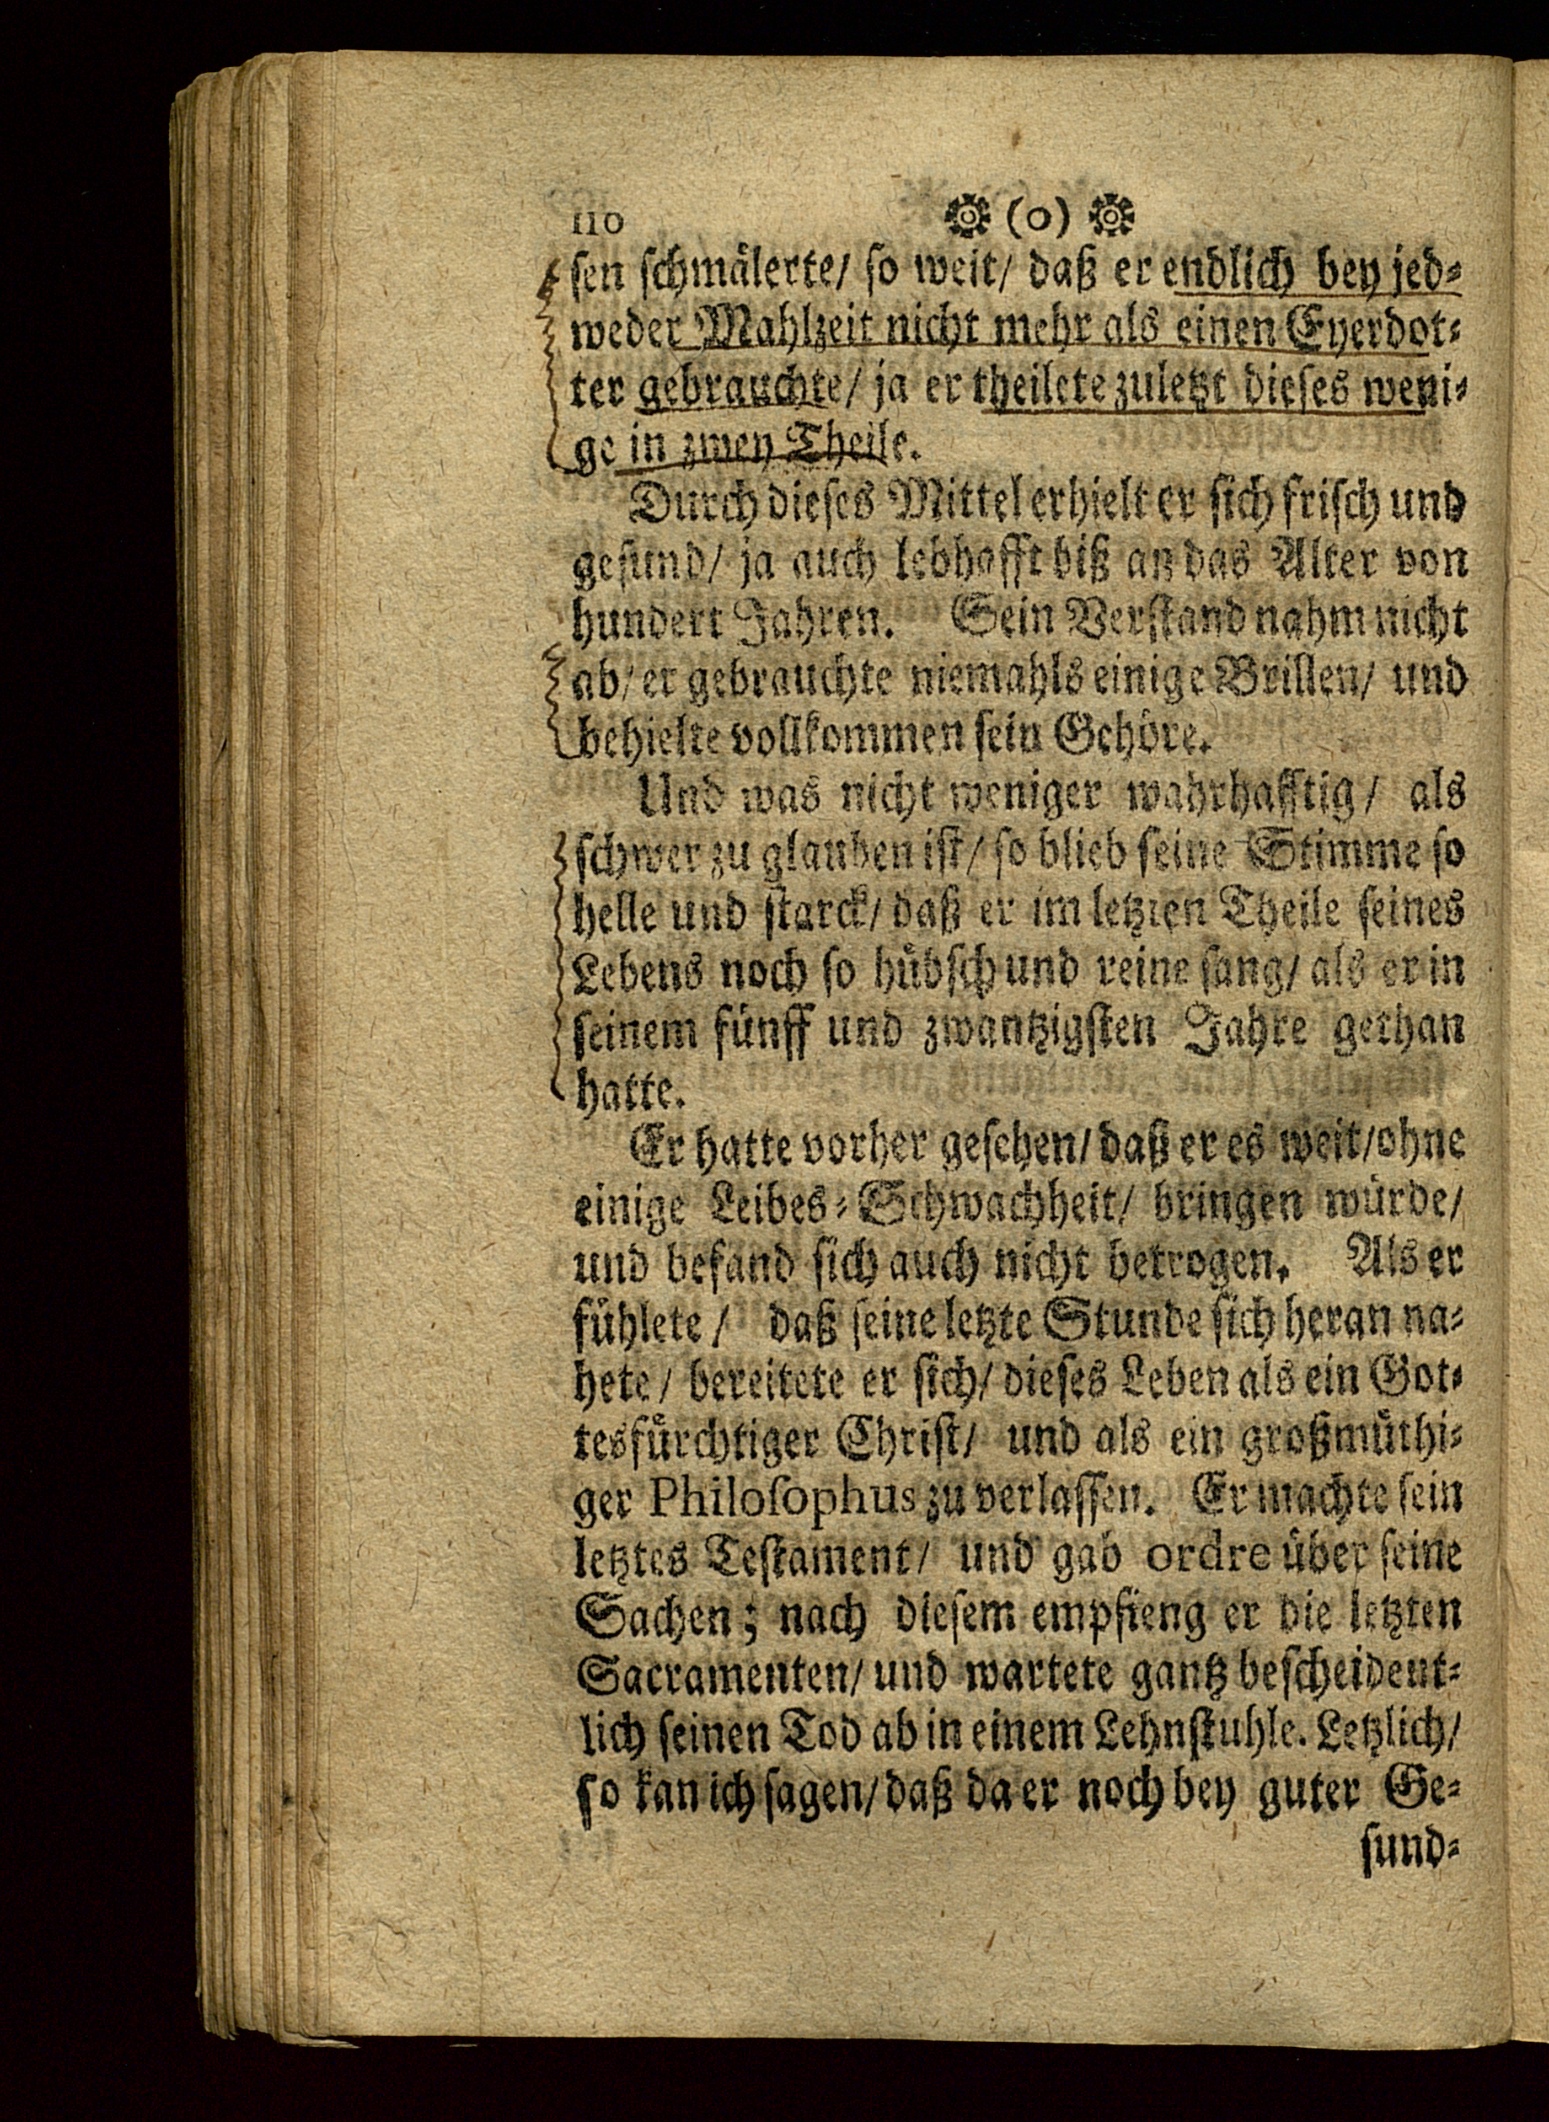 110 (o)
sen schmälerte/ so weit/ daß er endlich bey jed⸗
weder Mahlzeit nicht mehr als einen Eyerdot⸗
ter gebrauchte/ ja er theilete zuletzt dieses weni⸗
ge in zwey Theile.
Durch dieses Mittel erhielt er sich frisch und
gesund/ ja auch lebhafft biß an das Alter von
hundert Jahren. Sein Verstand nahm nicht
ab/ er gebrauchte niemahls einige Brillen/ und
behielte vollkommen sein Gehöre.
Und was nicht weniger wahrhafftig/ als
schwer zu glauben ist/ so blieb seine Stimme so
helle und starck/ daß er im letzten Theile seines
Lebens noch so hübsch und reine sang/ als er in
seinem fünff und zwantzigsten Jahre gethan
hatte.
Er hatte vorher gesehen/ daß er es weit/ ohne
einige Leibes⸗Schwachheit/ bringen würde/
und befand sich auch nicht betrogen. Als er
fühlete/ daß seine letzte Stunde sich heran na⸗
hete/ bereitete er sich/ dieses Leben als ein Got⸗
tesfürchtiger Christ/ und als ein großmüthi⸗
ger Philosophus zu verlassen. Er machte sein
letztes Testament/ und gab ordre über seine
Sachen; nach diesem empfieng er die letzten
Sacramenten/ und wartete gantz bescheident⸗
lich seinen Tod ab in einem Lehnstuhle. Letzlich/
so kan ich sagen/ daß da er noch bey guter Ge⸗
sund⸗